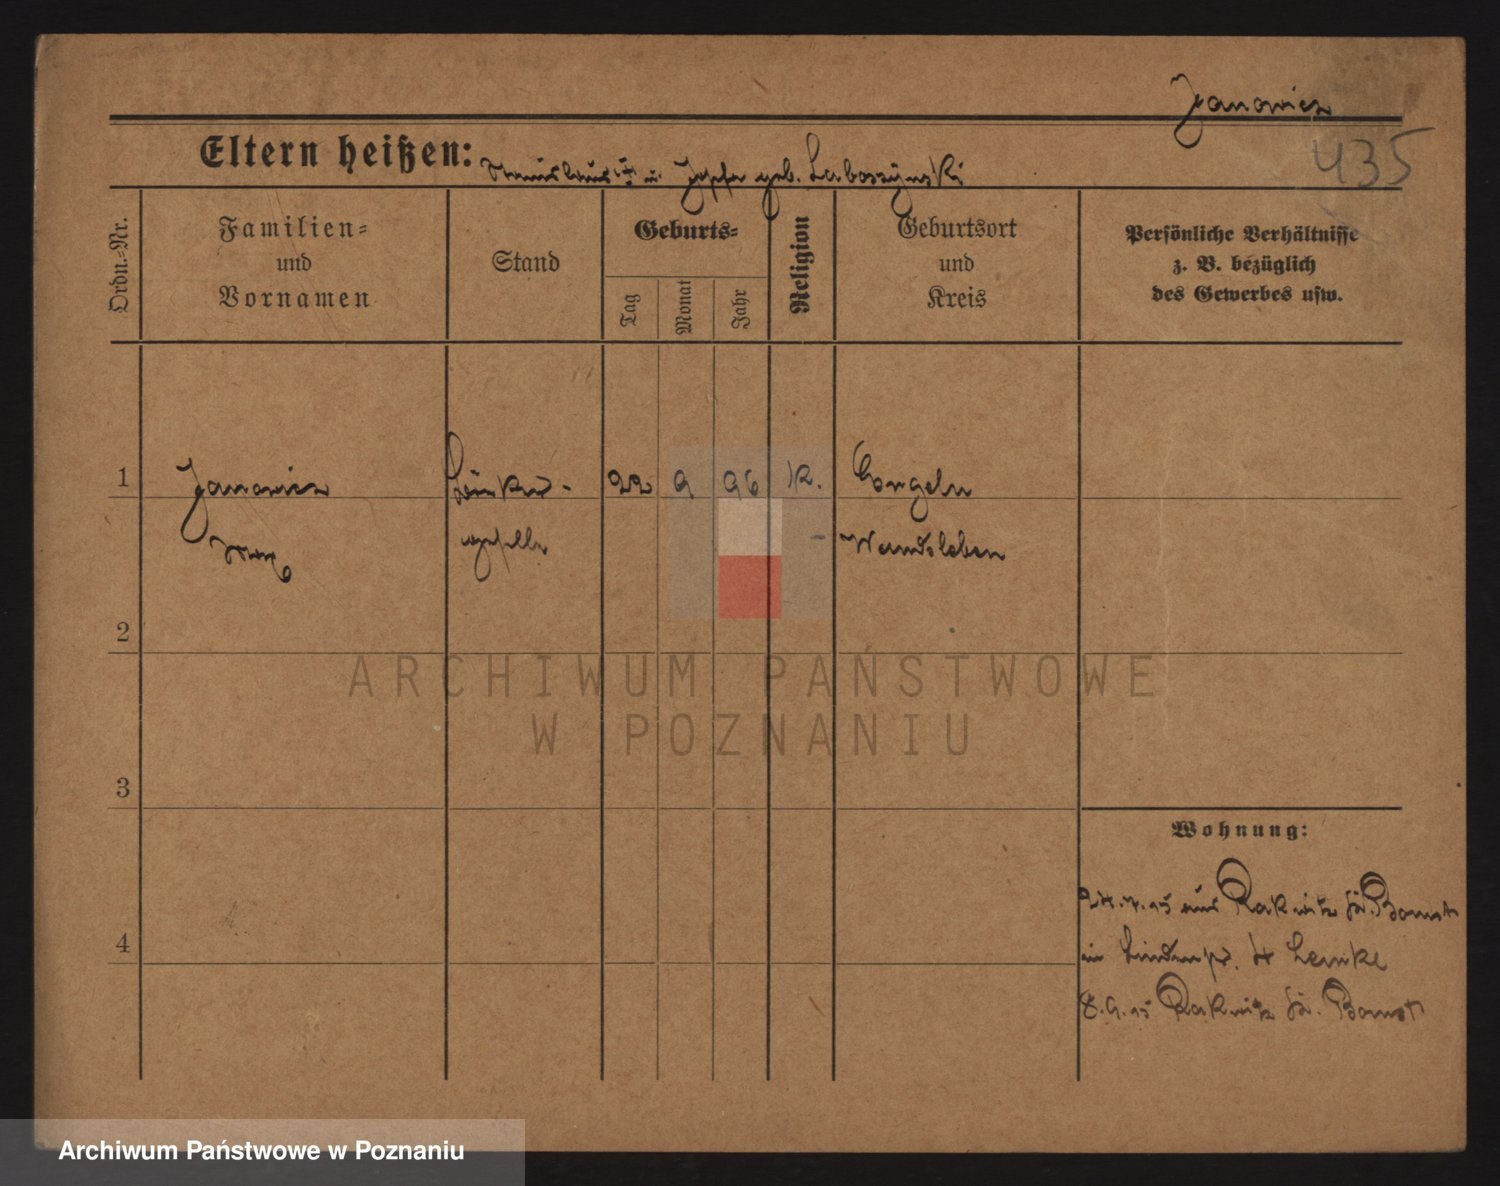 Janowicz
435
Eltern heißen: Stanislaus † u. Josefa geb. Laboszynski
Ordn.-Nr.
Familien-
und
Vornamen
Stand
Geburts-
Tag
Monat
Jahr
Religion
Geburtsort
und
Kreis
Persönliche Verhältnisse
z. B. bezüglich
des Gewerbes usw.
1
Janowicz
Max
Bäcker-
geselle
22 9 96 K.
Engeln
Wandsleben
2
3
4
Wohnung:
24.7.15 aus Rakwitz Kr. Bomst
in Lindenstr. 4 Lemke
8.9.15 Rakwitz Kr. Bomst
ARCHIWUM PAŃSTWOWE
W POZNANIU
Archiwum Państwowe w Poznaniu